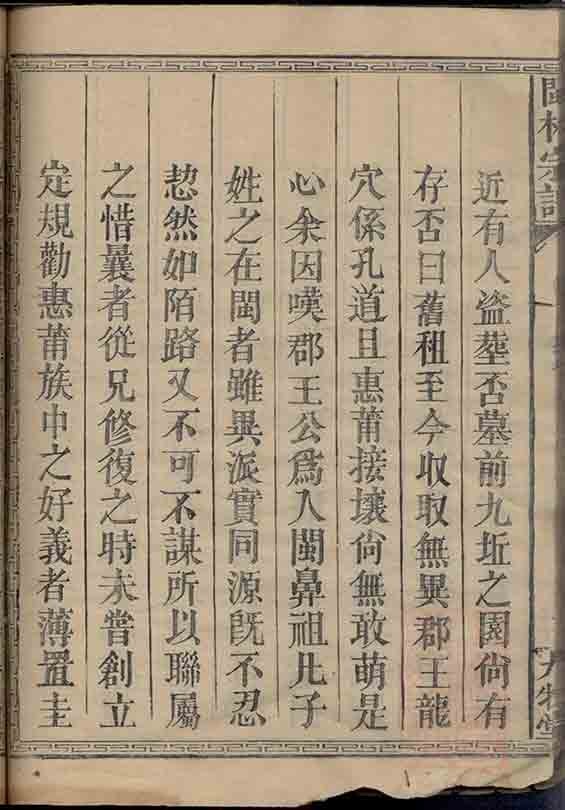 閩林宗譜
近有人盜塟否墓前九坵之園尙有
存否曰舊租至今收取無異郡王龍
穴係孔道且惠莆接壤尙無敢萌是
心余因嘆郡王公爲入閩鼻祖凡子
姓之在閩者雖異派實同源旣不忍
恝然如陌路又不可不謀所以聯屬
之惜曩者從兄修復之時未嘗創立
定規勸惠莆族中之好義者薄置圭